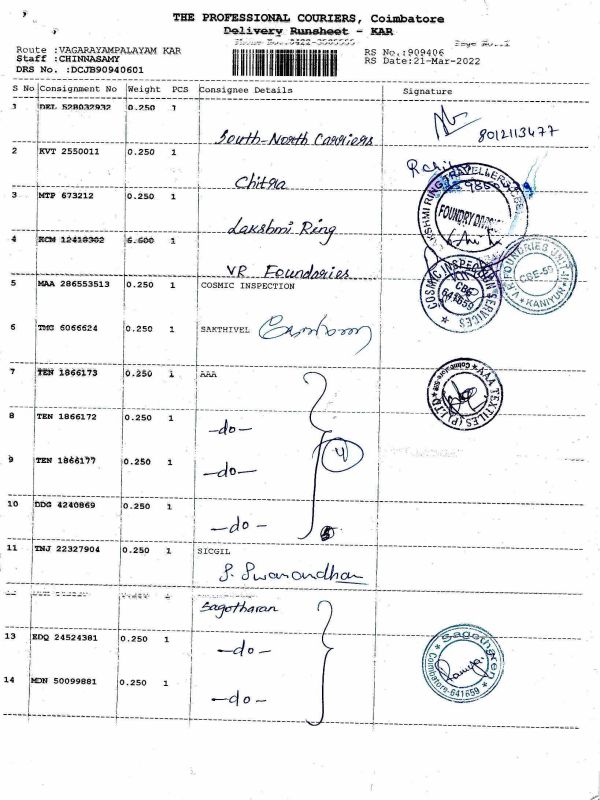 THE PROFESSIONAL COURIERS, Coimbatore
Delivery Runsheet - KAR
Route :VAGARAYAMPALAYAM KAR
Staff :CHINNASAMY
DRS No. :DCJB90940601
RS No.:909406
RS Date:21-Mar-2022
S No Consignment No Weight PCS Consignee Details Signature
1 DEL 528032932 0.250 1 South-North Carriers 8012113477
2 KVT 2550011 0.250 1 Chitra
3 MTP 673212 0.250 1 Lakshmi Ring
LAKSHMI RING TRAVELLERS
FOUNDRY DIVISION
4 KCM 12418302 6.600 1 VR Foundries
V.R. FOUNDRIES UNIT-II
CBE-59
KANIYUR
5 MAA 286553513 0.250 1 COSMIC INSPECTION
COSMIC INSPECTION SERVICES
CBE
641659
6 TMG 6066624 0.250 1 SAKTHIVEL
7 TEN 1866173 0.250 1 AAA
AAA TEXTILES (P) LTD
8 TEN 1866172 0.250 1 -do-
9 TEN 1866177 0.250 1 -do-
4
10 DDG 4240869 0.250 1 -do-
11 TNJ 22327904 0.250 1 SICGIL
Sagotharan
13 EDQ 24524381 0.250 1 -do-
Sagotharen
Coimbatore-641659
14 MDN 50099881 0.250 1 -do-